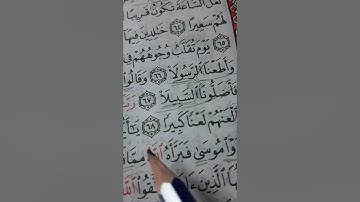 لَعَلَّ ٱلسَّاعَةَ تَكُونُ قَرِيبًا
لَهُمْ سَعِيرًا ٦٤ خَٰلِدِينَ فِيهَا
٦٥ يَوْمَ تُقَلَّبُ وُجُوهُهُمْ فِي
وَأَطَعْنَا ٱلرَّسُولَا ٦٦ وَقَالُوا
فَأَضَلُّونَا ٱلسَّبِيلَا ٦٧ رَبَّنَا
وَٱلْعَنْهُمْ لَعْنًا كَبِيرًا ٦٨ يَٰٓأَيُّهَا
مُوسَىٰ فَبَرَّأَهُ ٱللَّهُ مِمَّا
ٱلَّذِينَ ٱتَّقُوا۟ ٱللَّهَ